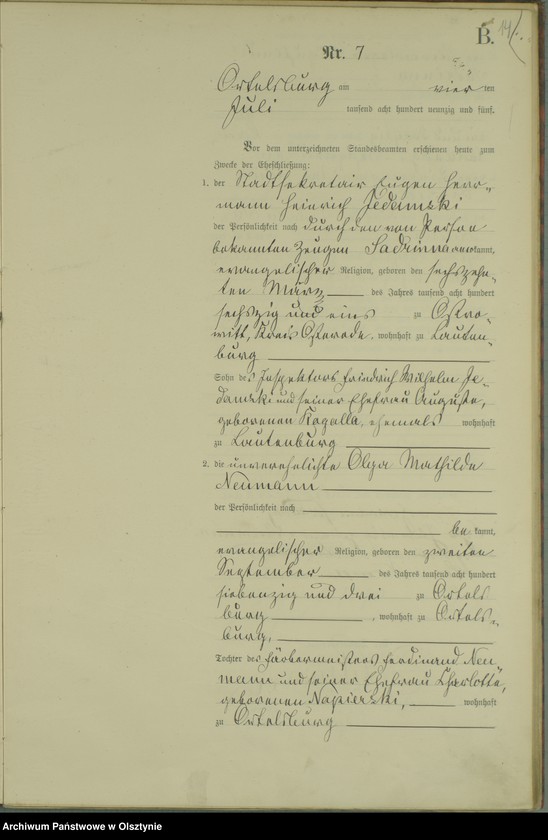 B.
14
Nr. 7
Ortelsburg am vier ten
Juli tausend acht hundert neunzig und fünf.
Vor dem unterzeichneten Standesbeamten erschienen heute zum
Zwecke der Eheschließung:
1. der Stadtsekretair Eugen Herr-
mann Heinrich Jedamski
der Persönlichkeit nach durch den von Person
bekannten Zeugen anerkannt,
evangelischer Religion, geboren den sechszehn-
ten März des Jahres tausend acht hundert
sechszig und eins zu Ostro-
witt, Kreis Osterode, wohnhaft zu Lauten-
burg
Sohn des Inspektors Friedrich Wilhelm Je-
damski und seiner Ehefrau Auguste,
geborenen Rogalla, ehemals wohnhaft
zu Lautenburg
2. die unverehelichte Olga Mathilde
Neumann
der Persönlichkeit nach
be kannt,
evangelischer Religion, geboren den zweiten
September des Jahres tausend acht hundert
siebenzig und drei zu Ortels
burg, wohnhaft zu Ortels-
burg,
Tochter des Färbermeisters Ferdinand Neu-
mann und seiner Ehefrau Charlotte,
geborenen Napierski, wohnhaft
zu Ortelsburg
Archiwum Państwowe w Olsztynie